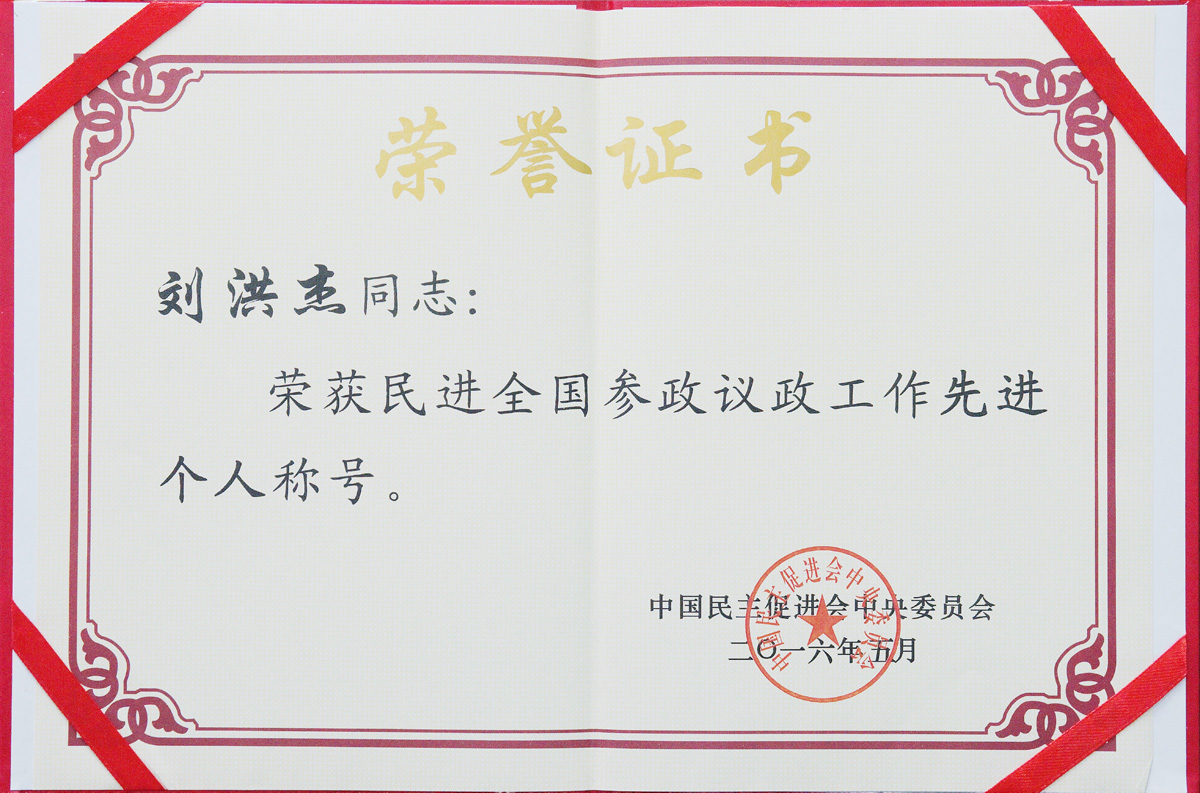 荣誉证书
刘洪杰同志：
荣获民进全国参政议政工作先进
个人称号。
中国民主促进会中央委员会
二〇一六年五月
中国民主促进会中央委员会